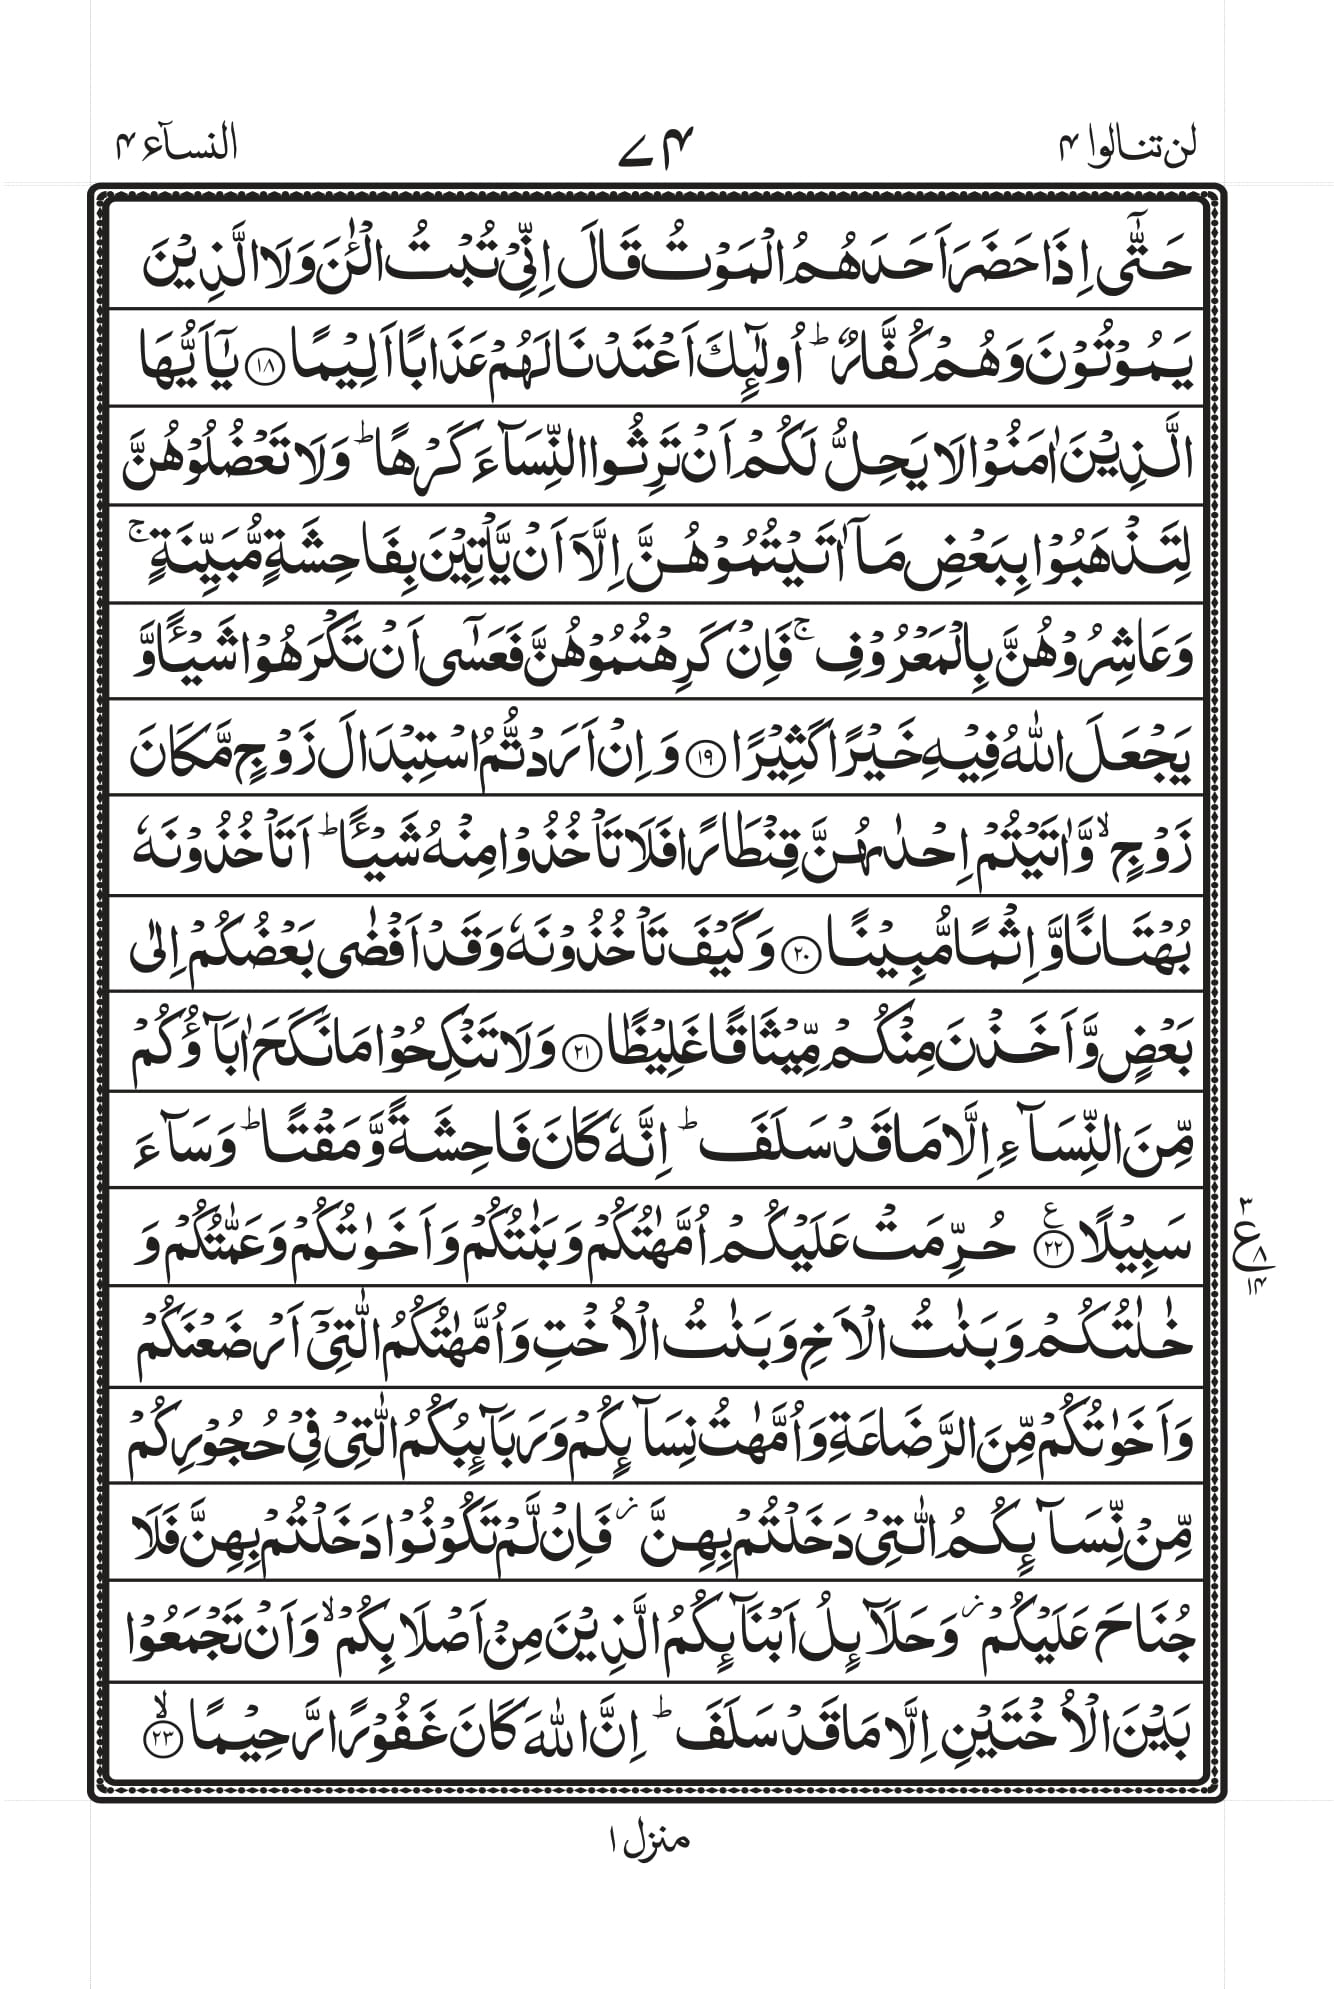 لن تنالوا ۴ ۷۴ النسآء ۴
حَتّٰۤى اِذَا حَضَرَ اَحَدَهُمُ الْمَوْتُ قَالَ اِنِّیْ تُبْتُ الْـٰٔنَ وَلَا الَّذِیْنَ
یَمُوْتُوْنَ وَهُمْ كُفَّارٌ ؕ اُولٰٓىِٕكَ اَعْتَدْنَا لَهُمْ عَذَابًا اَلِیْمًا ﴿۱۸﴾ یٰۤاَیُّهَا
الَّذِیْنَ اٰمَنُوْا لَا یَحِلُّ لَكُمْ اَنْ تَرِثُوا النِّسَآءَ كَرْهًا ؕ وَلَا تَعْضُلُوْهُنَّ
لِتَذْهَبُوْا بِبَعْضِ مَاۤ اٰتَیْتُمُوْهُنَّ اِلَّاۤ اَنْ یَّاْتِیْنَ بِفَاحِشَةٍ مُّبَیِّنَةٍ ۚ
وَعَاشِرُوْهُنَّ بِالْمَعْرُوْفِ ۚ فَاِنْ كَرِهْتُمُوْهُنَّ فَعَسٰۤى اَنْ تَكْرَهُوْا شَیْـًٔا وَّ
یَجْعَلَ اللّٰهُ فِیْهِ خَیْرًا كَثِیْرًا ﴿۱۹﴾ وَاِنْ اَرَدْتُّمُ اسْتِبْدَالَ زَوْجٍ مَّكَانَ
زَوْجٍ ۙ وَّاٰتَیْتُمْ اِحْدٰىهُنَّ قِنْطَارًا فَلَا تَاْخُذُوْا مِنْهُ شَیْـًٔا ؕ اَتَاْخُذُوْنَهٗ
بُهْتَانًا وَّاِثْمًا مُّبِیْنًا ﴿۲۰﴾ وَكَیْفَ تَاْخُذُوْنَهٗ وَقَدْ اَفْضٰى بَعْضُكُمْ اِلٰى
بَعْضٍ وَّاَخَذْنَ مِنْكُمْ مِّیْثَاقًا غَلِیْظًا ﴿۲۱﴾ وَلَا تَنْكِحُوْا مَا نَكَحَ اٰبَآؤُكُمْ
مِّنَ النِّسَآءِ اِلَّا مَا قَدْ سَلَفَ ؕ اِنَّهٗ كَانَ فَاحِشَةً وَّمَقْتًا ؕ وَسَآءَ
سَبِیْلًا ﴿۲۲﴾ ع حُرِّمَتْ عَلَیْكُمْ اُمَّهٰتُكُمْ وَبَنٰتُكُمْ وَاَخَوٰتُكُمْ وَعَمّٰتُكُمْ وَ
۳ ع ۸ ۱۴
خٰلٰتُكُمْ وَبَنٰتُ الْاَخِ وَبَنٰتُ الْاُخْتِ وَاُمَّهٰتُكُمُ الّٰتِیْۤ اَرْضَعْنَكُمْ
وَاَخَوٰتُكُمْ مِّنَ الرَّضَاعَةِ وَاُمَّهٰتُ نِسَآىِٕكُمْ وَرَبَآىِٕبُكُمُ الّٰتِیْ فِیْ حُجُوْرِكُمْ
مِّنْ نِّسَآىِٕكُمُ الّٰتِیْ دَخَلْتُمْ بِهِنَّ ؗ فَاِنْ لَّمْ تَكُوْنُوْا دَخَلْتُمْ بِهِنَّ فَلَا
جُنَاحَ عَلَیْكُمْ ؗ وَحَلَآىِٕلُ اَبْنَآىِٕكُمُ الَّذِیْنَ مِنْ اَصْلَابِكُمْ ۙ وَاَنْ تَجْمَعُوْا
بَیْنَ الْاُخْتَیْنِ اِلَّا مَا قَدْ سَلَفَ ؕ اِنَّ اللّٰهَ كَانَ غَفُوْرًا رَّحِیْمًا ﴿۲۳﴾ ۙ
منزل ۱